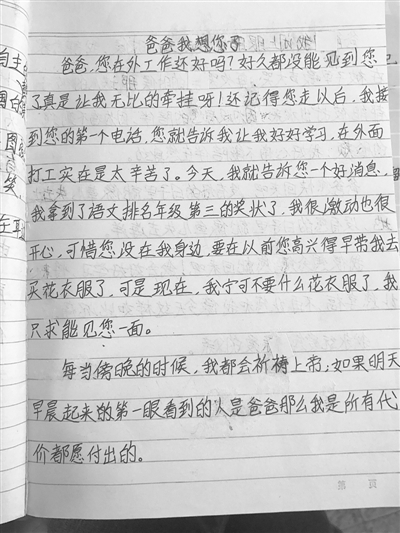 爸爸我想您了
爸爸，您在外工作还好吗？好久都没能见到您
了真是让我无比的牵挂呀！还记得您走以后，我接
到您的第一个电话，您就告诉我让我好好学习，在外面
打工实在是太辛苦了。今天，我就告诉您一个好消息，
我拿到了语文排名年级第三的奖状了，我很激动也很
开心，可惜您没在我身边，要在以前您高兴得早带我去
买花衣服了，可是现在，我宁可不要什么花衣服了，我
只求能见您一面。
每当傍晚的时候，我都会祈祷上帝；如果明天
早晨起来的第一眼看到的人是爸爸那么我是所有代
价都愿付出的。
第 页